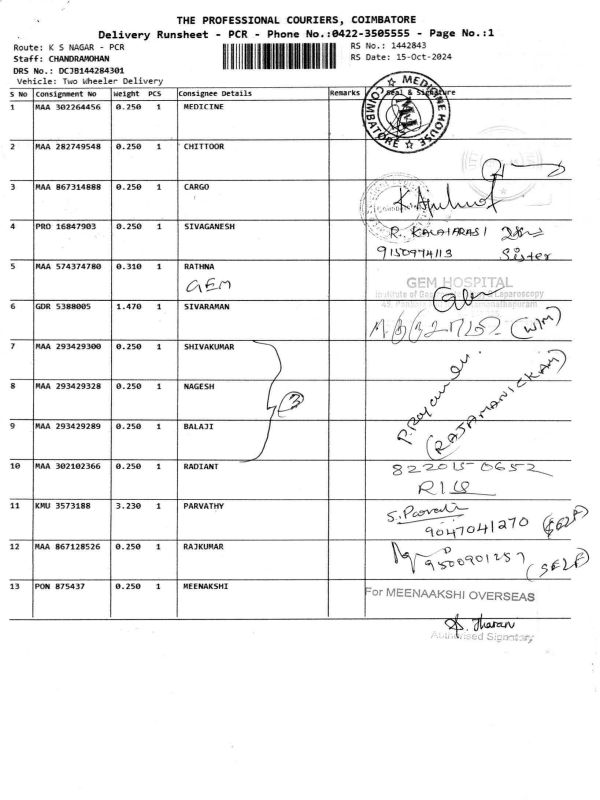 THE PROFESSIONAL COURIERS, COIMBATORE
Delivery Runsheet - PCR - Phone No.:0422-3505555 - Page No.:1
Route: K S NAGAR - PCR
RS No.: 1442843
Staff: CHANDRAMOHAN
RS Date: 15-Oct-2024
DRS No.: DCJB144284301
Vehicle: Two Wheeler Delivery
S No Consignment No Weight PCS Consignee Details Remarks Seal & Signature
1 MAA 302264456 0.250 1 MEDICINE
MEDICINE HOUSE COIMBATORE
2 MAA 282749548 0.250 1 CHITTOOR
3 MAA 867314888 0.250 1 CARGO
4 PRO 16847903 0.250 1 SIVAGANESH R. KALAIARASI
9150974113 Sister
5 MAA 574374780 0.310 1 RATHNA
GEM
GEM HOSPITAL
Institute of Laparoscopy
6 GDR 5388005 1.470 1 SIVARAMAN (W/M)
7 MAA 293429300 0.250 1 SHIVAKUMAR
8 MAA 293429328 0.250 1 NAGESH
3
(RAJAMANICKAM)
9 MAA 293429289 0.250 1 BALAJI
10 MAA 302102366 0.250 1 RADIANT 822015-0652
11 KMU 3573188 3.230 1 PARVATHY
9047041270 (SELF)
12 MAA 867128526 0.250 1 RAJKUMAR
9500901257 (SELF)
13 PON 875437 0.250 1 MEENAKSHI
For MEENAAKSHI OVERSEAS
Authorised Signatory